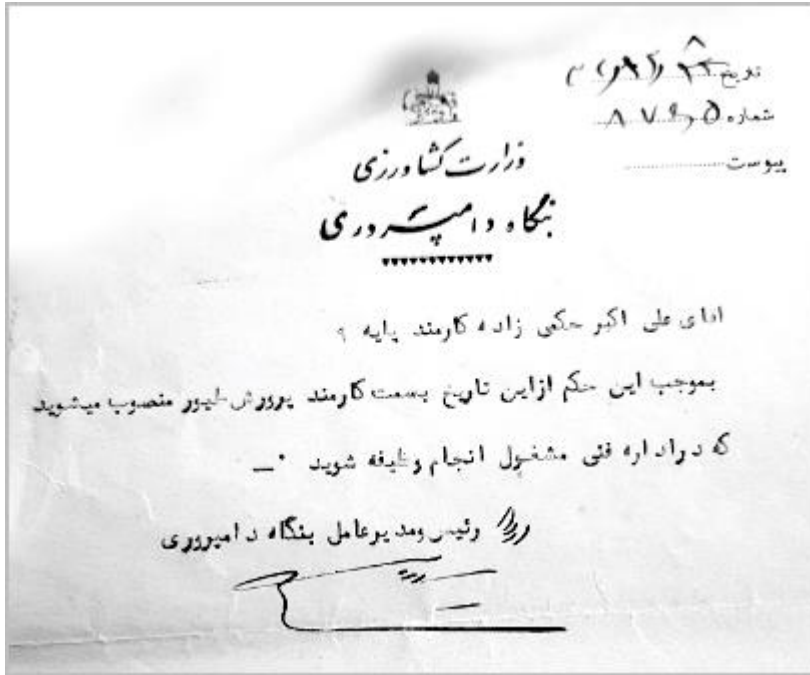 تاریخ
شماره ۸۷۶۰۵
پیوست
وزارت کشاورزی
بنگاه دامپروری
اقای علی اکبر حکمی زاده کارمند پایه ۹
بموجب این حکم ازاین تاریخ بسمت کارمند پرورش طیور منصوب میشوید
که دراداره فنی مشغول انجام وظیفه شوید ۰ـ
رئیس ومدیرعامل بنگاه دامپروری